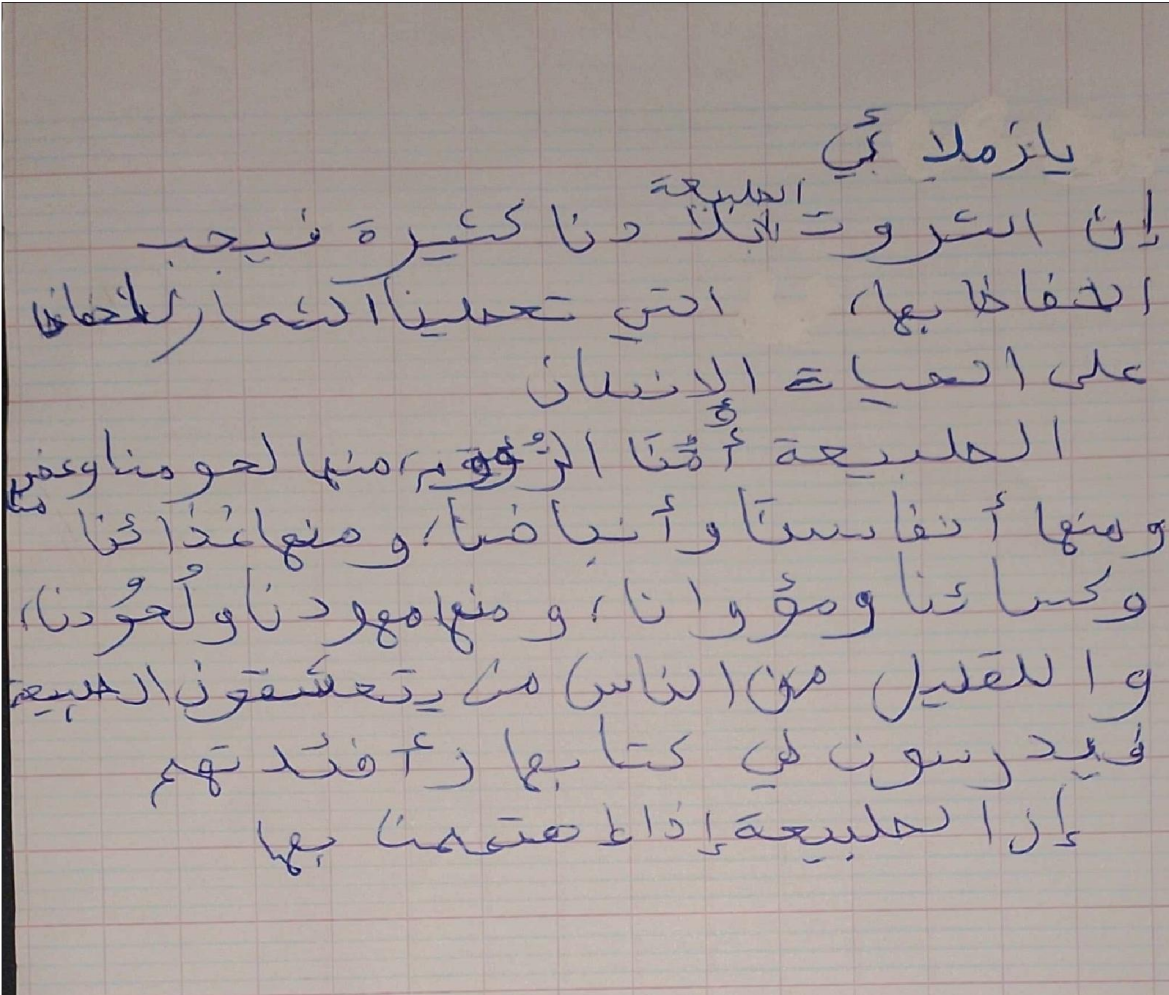 يازملائي
إن الثروت الطبيعة لبلادنا كثيرة فيجب
الحفاظ بها، التي تعطينا الثمار للحفاظ
على الحياة الإنسان
الطبيعة أُمُّنَا الرَّؤُوم، منها لحومنا وعضمنا
ومنها أنفاسنا وأنباضنا، ومنها غذائنا
وكسائنا ومؤوانا، ومنها مهودنا ولُحُودنا،
واللقليل من الناس من يتعشقون الطبيعة
فيدرسون في كتابها وأفئدتهم
إن الطبيعة إذا اهتممنا بها